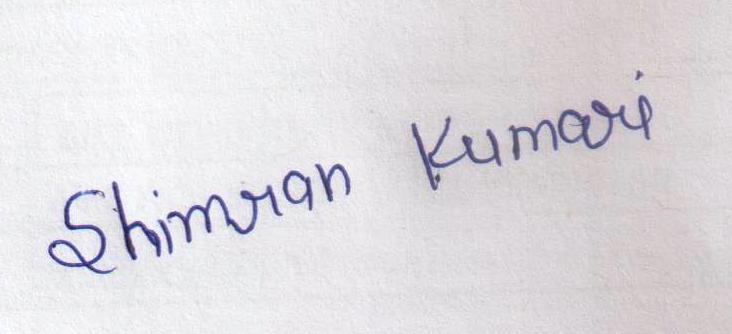 Shimran Kumari